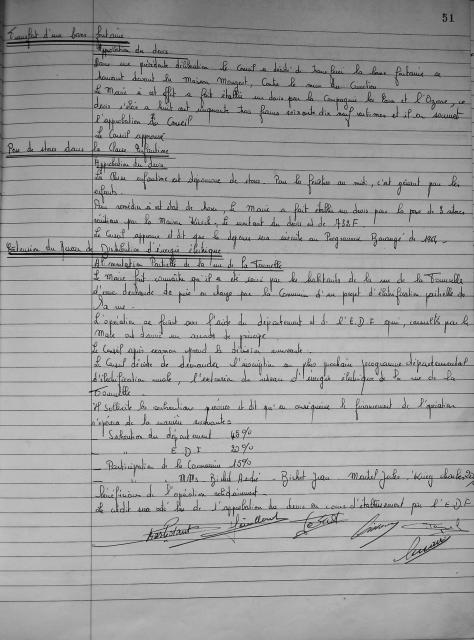 51
Transfert d'une borne fontaine
Approbation du devis
Dans une précédente délibération le Conseil a décidé de transférer la borne fontaine se
trouvant devant la Maison Mougeot, Contre le mur du Cimetière
Le Maire à cet effet a fait établir un devis par la Compagnie des Eaux et l'Ozone, ce
devis s'élève à huit cent cinquante trois francs soixante dix neuf centimes et il en soumet
l'approbation au Conseil
Le Conseil approuve
Pose de stores dans la Classe Enfantine
Approbation du devis
La Classe enfantine est dépourvue de stores. Pour la fenêtre au midi, c'est gênant pour les
enfants.
Pour remédier à cet état de chose, le Maire a fait établir un devis pour la pose de 3 stores
par la Maison le montant du devis est de
Le Conseil approuve et dit que la dépense sera inscrite au Programme Barangé de
Extension du Réseau de Distribution d'énergie électrique
Alimentation Partielle de la rue de la Tournelle
Le Maire fait connaître qu'il a été saisi par les habitants de la rue de la Tournelle
d'une demande de prise en charge par la Commune d'un projet d'électrification partielle de
la rue
L'opération se faisant avec l'aide du département et de l'E.D.F qui, consultés par le
Maire ont donné un accord de principe.
Le Conseil après examen prend la décision suivante.
Le Conseil décide de demander l'inscription au plus prochain programme départemental
d'électrification rurale, l'extension du réseau d'énergie électrique de la rue de la
Tournelle.
Il sollicite les subventions prévues et dit qu'en conséquence le financement de l'opération
s'opèrera de la manière suivante
- Subvention du département 45%
- " E.D.F 20%
- Participation de la Commune 15%
- " MMs Bichet André - Bichet Jean Martel Jules - Charles 20%
bénéficiaires de l'opération solidairement.
Le crédit sera voté lors de l'approbation du devis en cours d'établissement par l'E.D.F